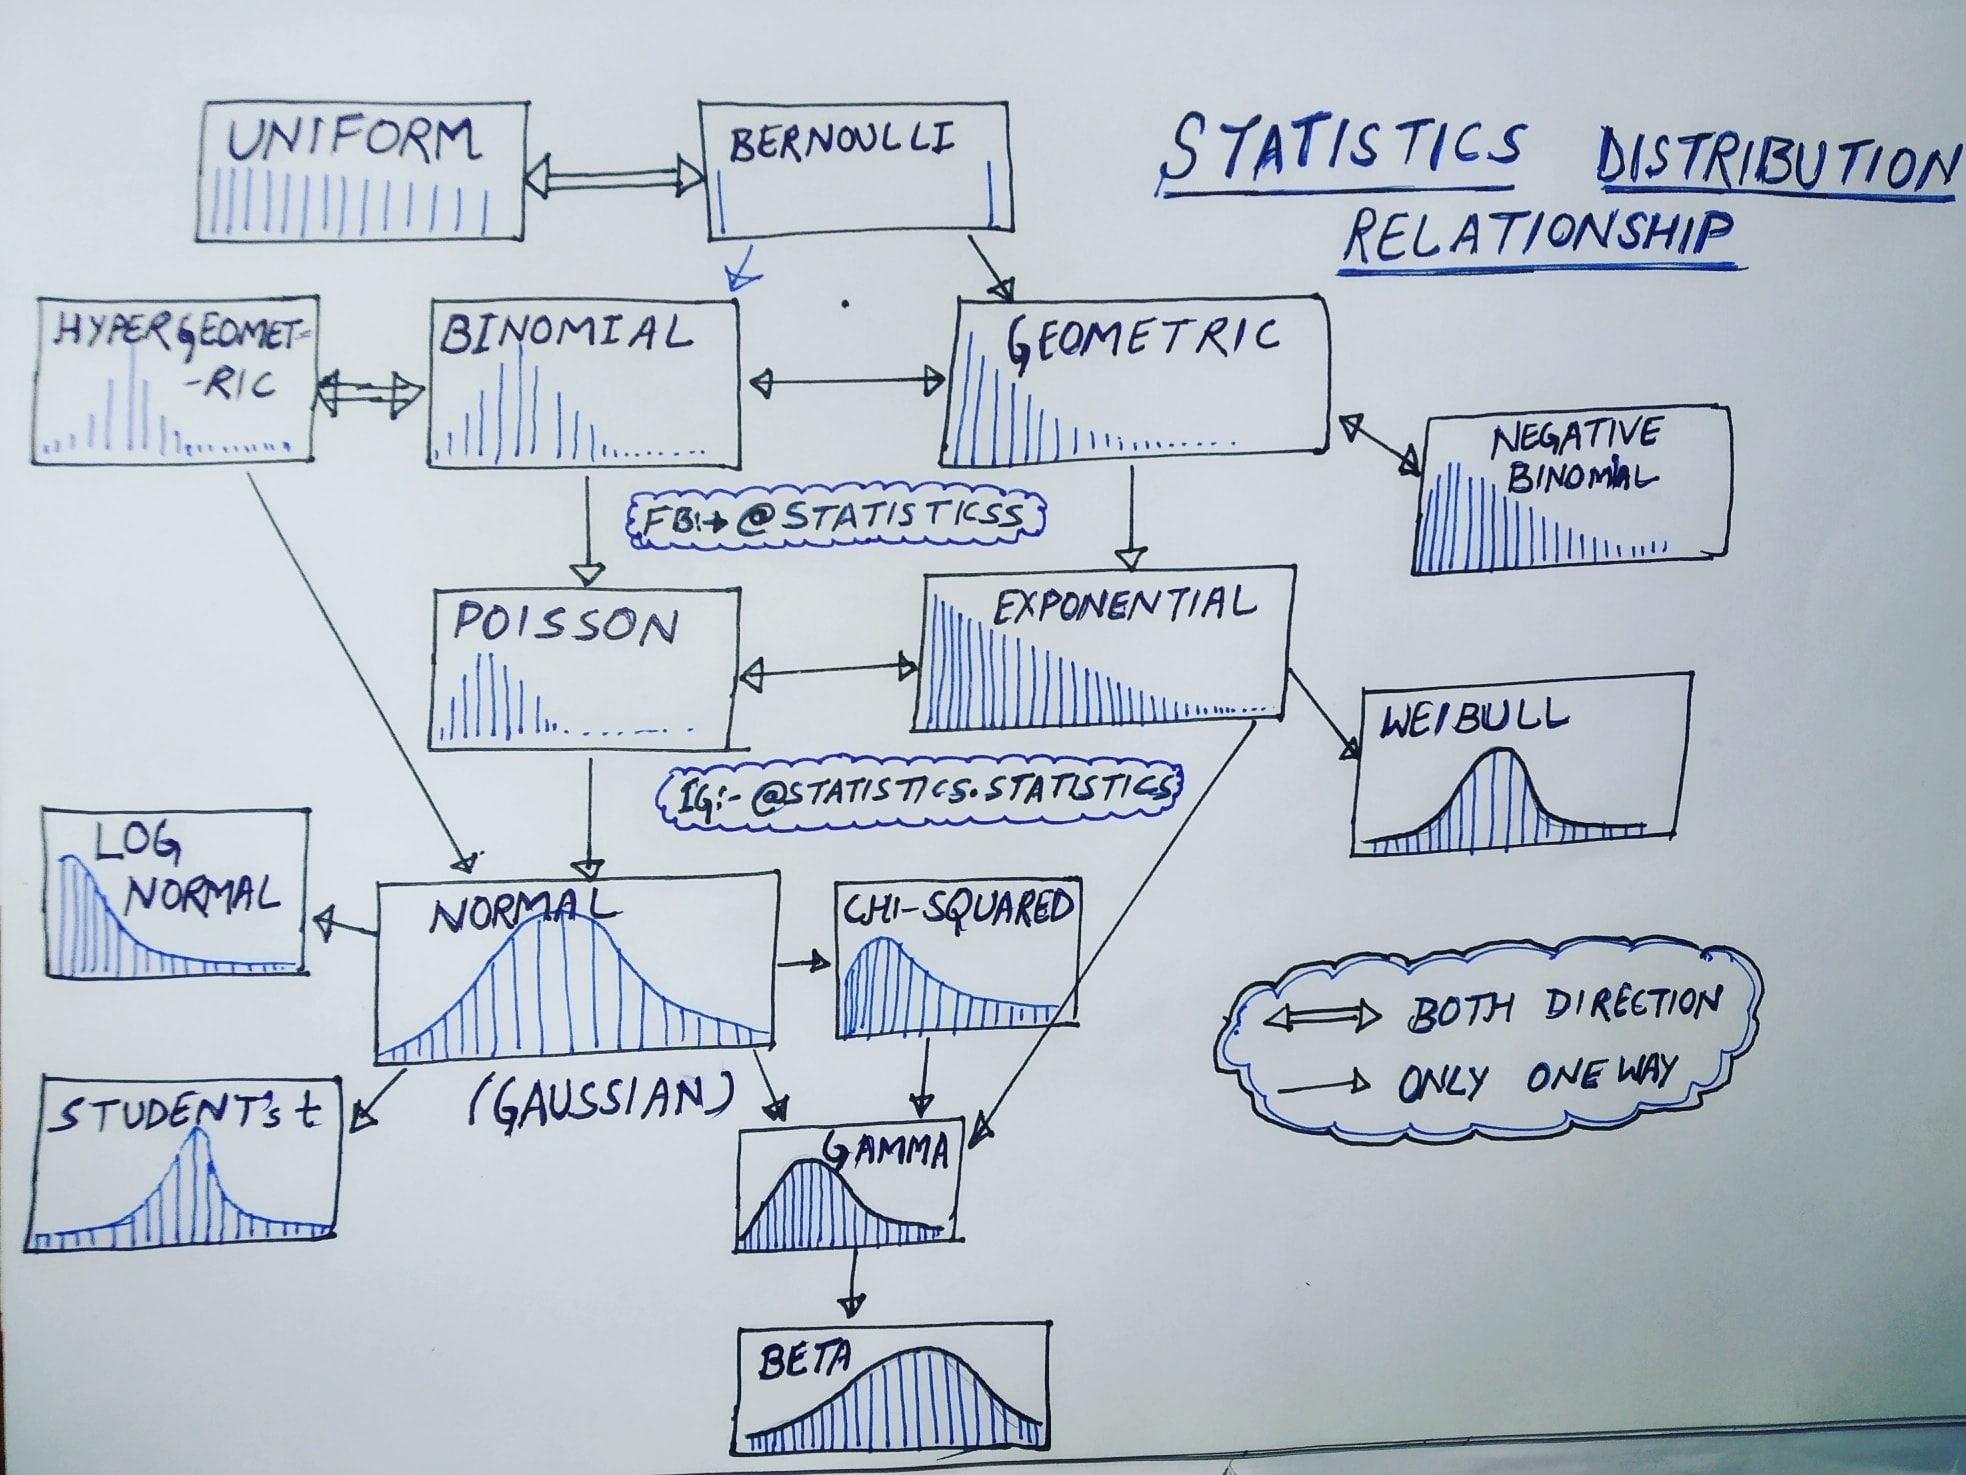 STATISTICS DISTRIBUTION
RELATIONSHIP
UNIFORM
BERNOULLI
HYPERGEOMET-
-RIC
BINOMIAL
GEOMETRIC
NEGATIVE
BINOMIAL
FB:→ @STATISTICSS
POISSON
EXPONENTIAL
WEIBULL
IG:- @STATISTICS.STATISTICS
LOG
NORMAL
NORMAL
(GAUSSIAN)
CHI-SQUARED
STUDENT's t
GAMMA
BETA
BOTH DIRECTION
ONLY ONE WAY